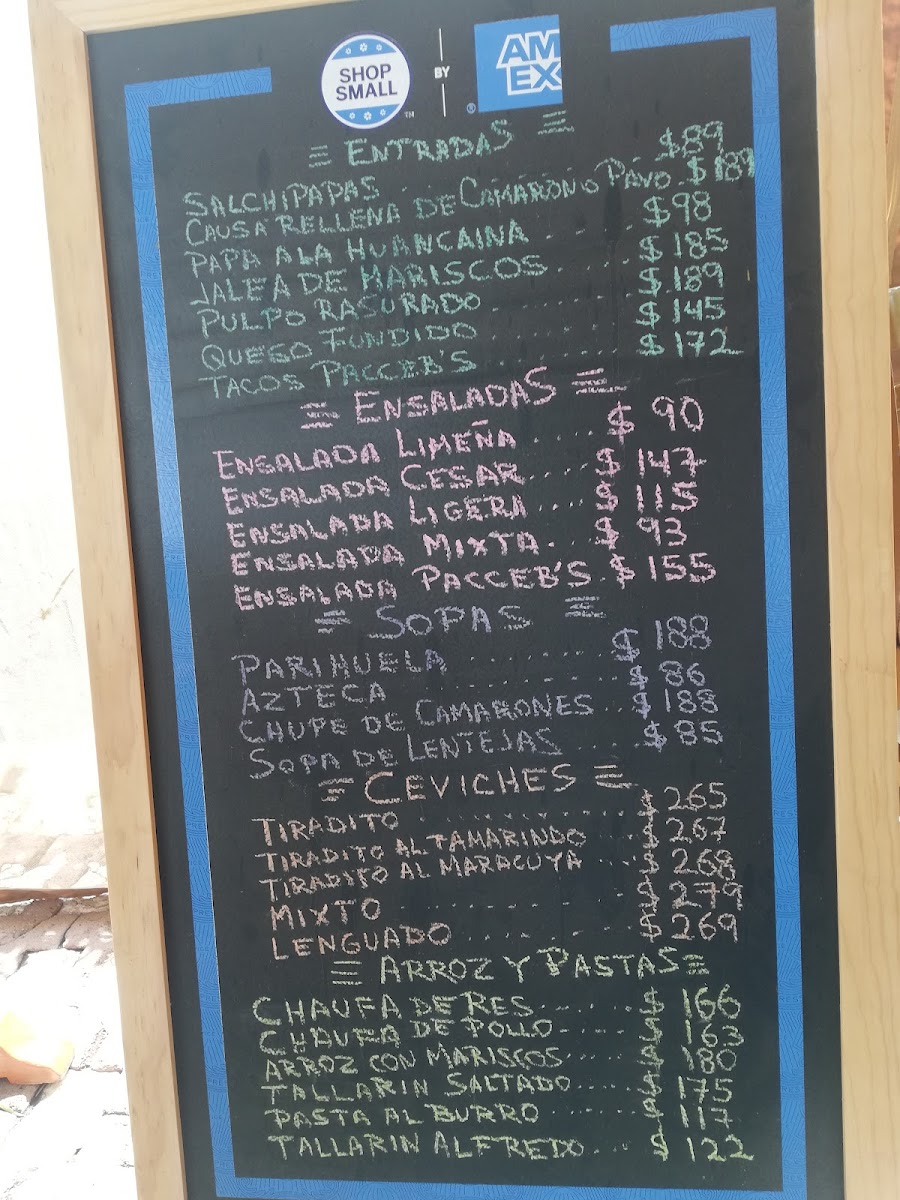 SHOP
SMALL
TM
BY
AM
EX
®
≡ ENTRADAS ≡
SALCHIPAPAS . . . . . . $89
CAUSA RELLENA DE CAMARON O PAVO . $189
PAPA A LA HUANCAINA . . . . $98
JALEA DE MARISCOS . . . . . $185
PULPO RASURADO . . . . . . $189
QUESO FUNDIDO . . . . . . $145
TACOS PACCEB'S . . . . . . $172
≡ ENSALADAS ≡
ENSALADA LIMEÑA . . . . $ 90
ENSALADA CESAR . . . . $ 147
ENSALADA LIGERA . . . . $ 115
ENSALADA MIXTA . . . $ 93
ENSALADA PACCEB'S . $ 155
≡ SOPAS ≡
PARIHUELA . . . . . . . $ 188
AZTECA . . . . . . . . . $ 86
CHUPE DE CAMARONES . . $ 188
SOPA DE LENTEJAS . . . . $ 85
≡ CEVICHES ≡
TIRADITO . . . . . . . . . $ 265
TIRADITO AL TAMARINDO . . . $ 267
TIRADITO AL MARACUYA . . . $ 268
MIXTO . . . . . . . $ 279
LENGUADO . . . . . . . $ 269
≡ ARROZ Y PASTAS ≡
CHAUFA DE RES . . . . . $ 166
CHAUFA DE POLLO . . . . $ 163
ARROZ CON MARISCOS . . . . $ 180
TALLARIN SALTADO . . . . $ 175
PASTA AL BURRO . . . . . . $ 117
TALLARIN ALFREDO . . . $ 122